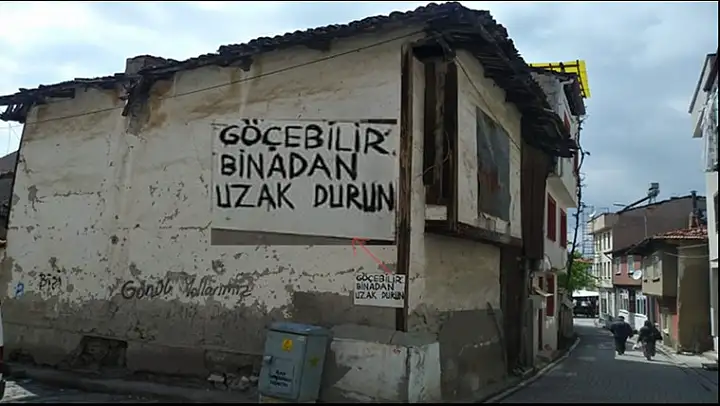 GÖÇEBİLİR
BİNADAN
UZAK DURUN
GÖÇEBİLİR
BİNADAN
UZAK DURUN
Gönül Yollarımız